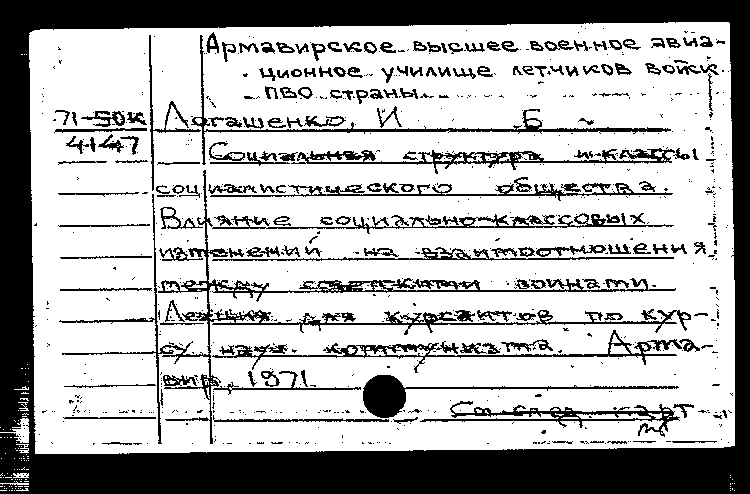 Армавирское высшее военное авиа-
ционное училище летчиков войск
ПВО страны.
71-50К Логашенко, И Б
4147 Социальная структура и классы
социалистического общества.
Влияние социально-классовых
изменений на взаимоотношения
между советскими воинами.
Лекция для курсантов по кур-
су науч. коммунизма. Арма-
вир, 1971.
См. след. карт